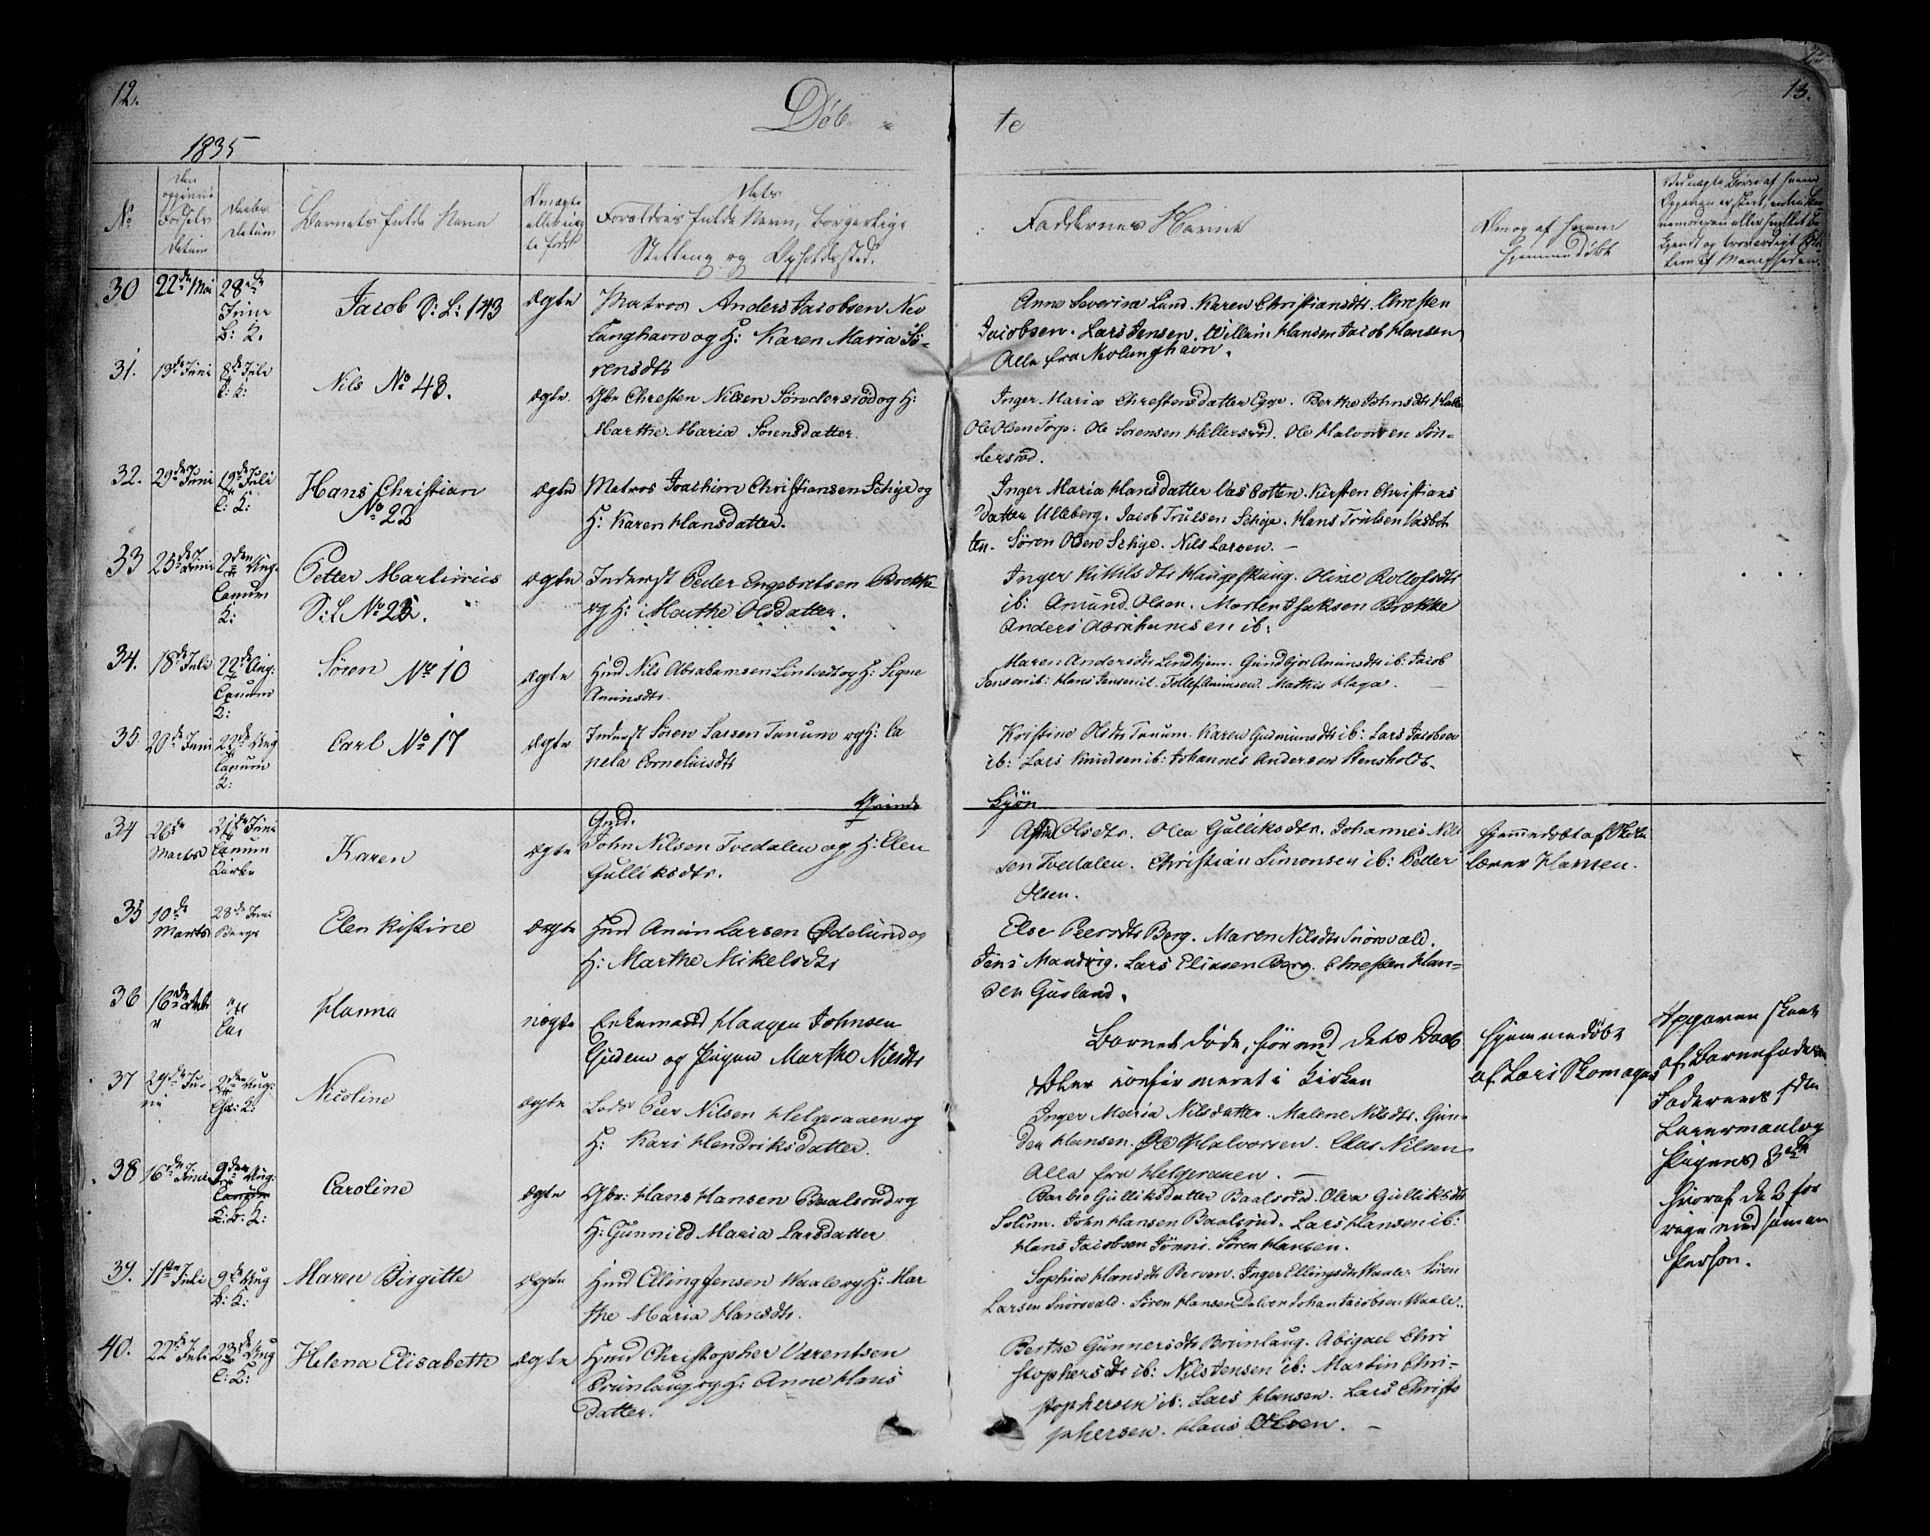 12.
13.
Døb te
1835
No
Den opgivne Fødsels Datum
Daabs Datum
Barnets fulde Navn
Om ægte eller uægte født
Dets Forældres fulde Navn, borgerlige
Stilling og Opholdssted.
Faddernes Navne
Om og af hvem
hjemmedøbt
30 22de Mai 28de Juni L: K. Jacob D: L: 143 ægte Matros Anders Jacobsen Nev
lunghavn og H: Karen Maria Sø-
rensdtr
Anne Severine Lund. Karen Christiansdtr. Chresten
Jacobsen. Lars Jensen. Willum Hansen Jacob Hansen
Alle fra Nevlunghavn.
31. 19de Juni 8de Juli Nils No 48. ægte Gbr Chresten Nilsen Søndersrød og H:
Marthe Maria Sørensdatter.
Inger Maria Chrestensdatter Eggje. Berthe Johnsdtr
Ole Olsen Torp. Ole Sørensen Hillersrød. Ole Halvorsen Søn-
dersrød.
32. 29de Juni 19de Juli Hans Christian
No 22 ægte Matros Joachim Christiansen Schije og
H: Karen Hansdatter.
Inger Maria Hansdatter Vasbotten. Kirsten Christians
datter Ulleberg. Jacob Trulsen Schije. Hans Trulsen Vasbot
ten. Søren Olsen Schije. Nils Larsen. —
33 25de Juni 2den Aug. Tanum K: Petter Martinius
D: L No 25. ægte Inderst Peder Engebretsen Brekke
og H: Marthe Olsdatter.
Inger Kittilsdtr Haugeskaug. Oline Rollefsdtr
ib: Amund Olsen. Morten Isaksen Brekke
Anders Abrahamsen ib:
34. 18de Juli 22de Aug: Tanum K: Søren No 10 ægte Hmd Nils Abrahamsen Lintvedt og H: Signe
Amunsdtr.
Maren Andersdtr Lindhjem. Gundbjør Amunsdtr ib: Jacob
Jensen ib: Hans Jensen ib. Tollef Amunsen. Mathis Haga. —
35 20de Juni 22de Aug Tanum K: Carl No 17 ægte Inderst Søren Larsen Tanum og H: Ca
nela Cornelius dtr
Kristine Olsdtr Tanum. Karen Gudmunsdtr ib: Lars Jacobsen
ib: Lars Knudsen ib: Johannes Andersen Stensholt.
Qvinde
Kjøn
34 26de Marts 21de Juni Tanum Kirke Karen ægte Gmd.
John Nilsen Tvedalen og H: Elen
Gulliksdtr.
Olsdtr. Olea Gulliksdtr. Johannes Nil
sen Tvedalen. Christian Simonsen ib: Peder
Olsen.
hjemmedøbt af Skole
lærer Hansen.
35 10de Marts 28de Juni Berge Elen Kistine ægte Hmd Amun Larsen Ødelund og
H: Marthe Mikelsdtr
Else Peersdtr Berg. Maren Nilsdtr Snorsvald.
Jens Manvig. Lars Eliasen Berg. Chresten Han-
sen Gusland.
36 16de Hanna uægte Enkemand Haagen Johnsen
Gidem og Pigen Marthe Nilsdtr
Barnet døde, førend dets Daab
blev confirmeret i Kirken
hjemmedøbt
af Lars Skomager
Opgaven skeet
af Barnefaderen
Faderens 1ste
Leiermaal og
Pigens 3die
hvoraf de 2 for
rige med samme
Person.
37 29de Juni 2den Aug: Nicoline ægte Lods Peer Nilsen Helgeraaen og
H: Kari Hendriksdatter.
Inger Maria Nilsdatter. Malene Nilsdtr. Gun-
der Hansen. Ole Halvorsen. Elias Nilsen
Alle fra Helgeraaen. —
38 16de Juni 9den Aug: Caroline ægte Gbr: Hans Hansen Baalsrud og
H: Gunnild Maria Larsdatter
Barbro Gulliksdatter Baalsrud. Olea Gulliksdtr
Solum. John Hansen Baalsrud. Lars Hansen ib:
Hans Jacobsen Jønni. Søren Hansen.
39. 11te Juli 9de Aug B: K: Maren Birgitte ægte Hmd Elling Jensen Waale og H: Mar
the Maria Hansdtr.
Sophie Hansdtr Berven. Inger Ellingsdtr Waale. Søren
Larsen Snorsvald. Søren Hansen Dolven Johan Jacobsen Waale.
40. 22de Juli 23de Aug L: K: Helena Elisabethe ægte Hmd Christopher Værentsen
Brunlaug og H: Anne Hans
datter.
Berthe Gunnersdtr Brunlaug. Abigael Chri
stophersdtr ib: Nils Jensen ib: Martin Chri-
stophersen ib: Lars Hansen. Lars Christo
phersen. Hans Olsen. —